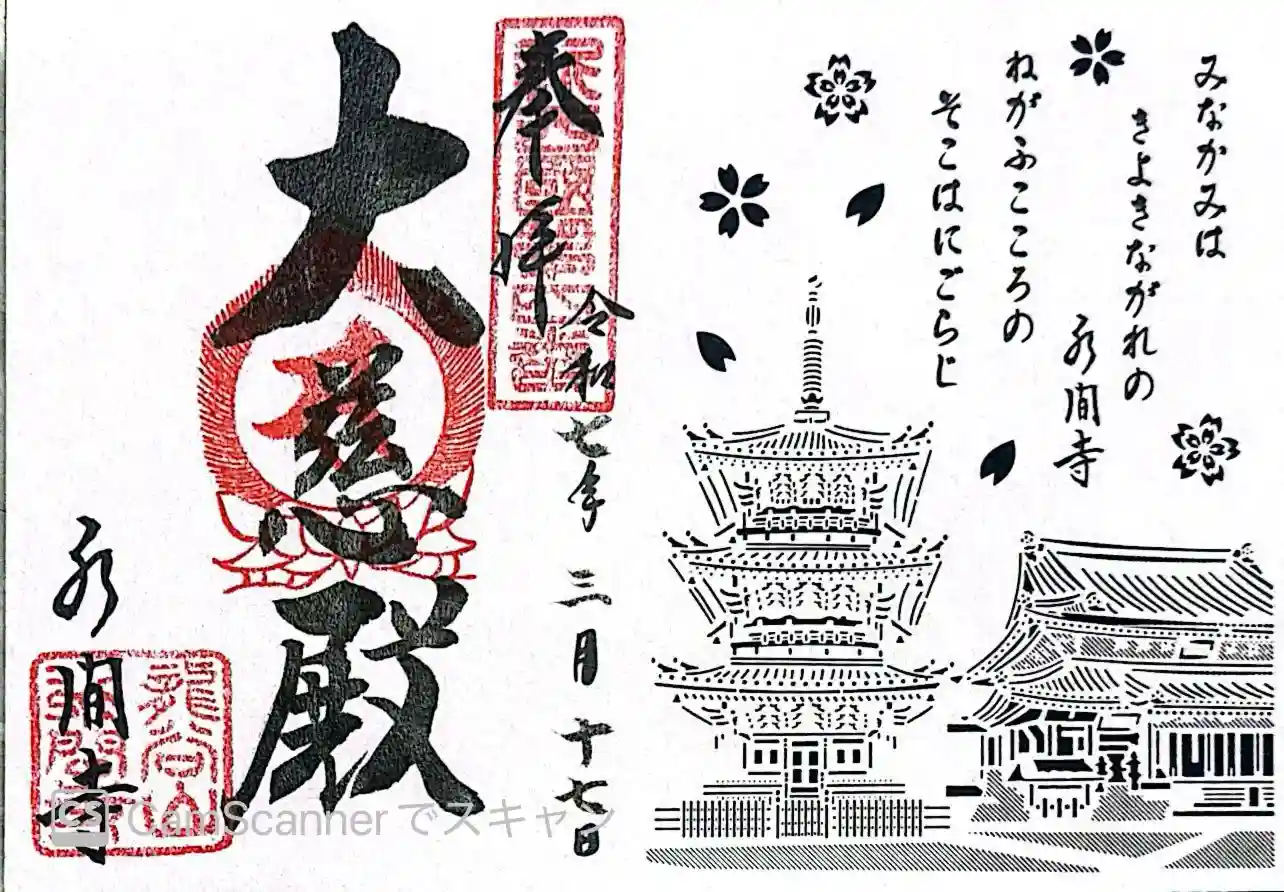 みなかみは
きよきながれの
ねがふこころの
そこはにごらじ
水間寺
奉拝
令和七年三月十七日
大慈殿
水間寺
龍谷山
水間寺
CS CamScanner でスキャン